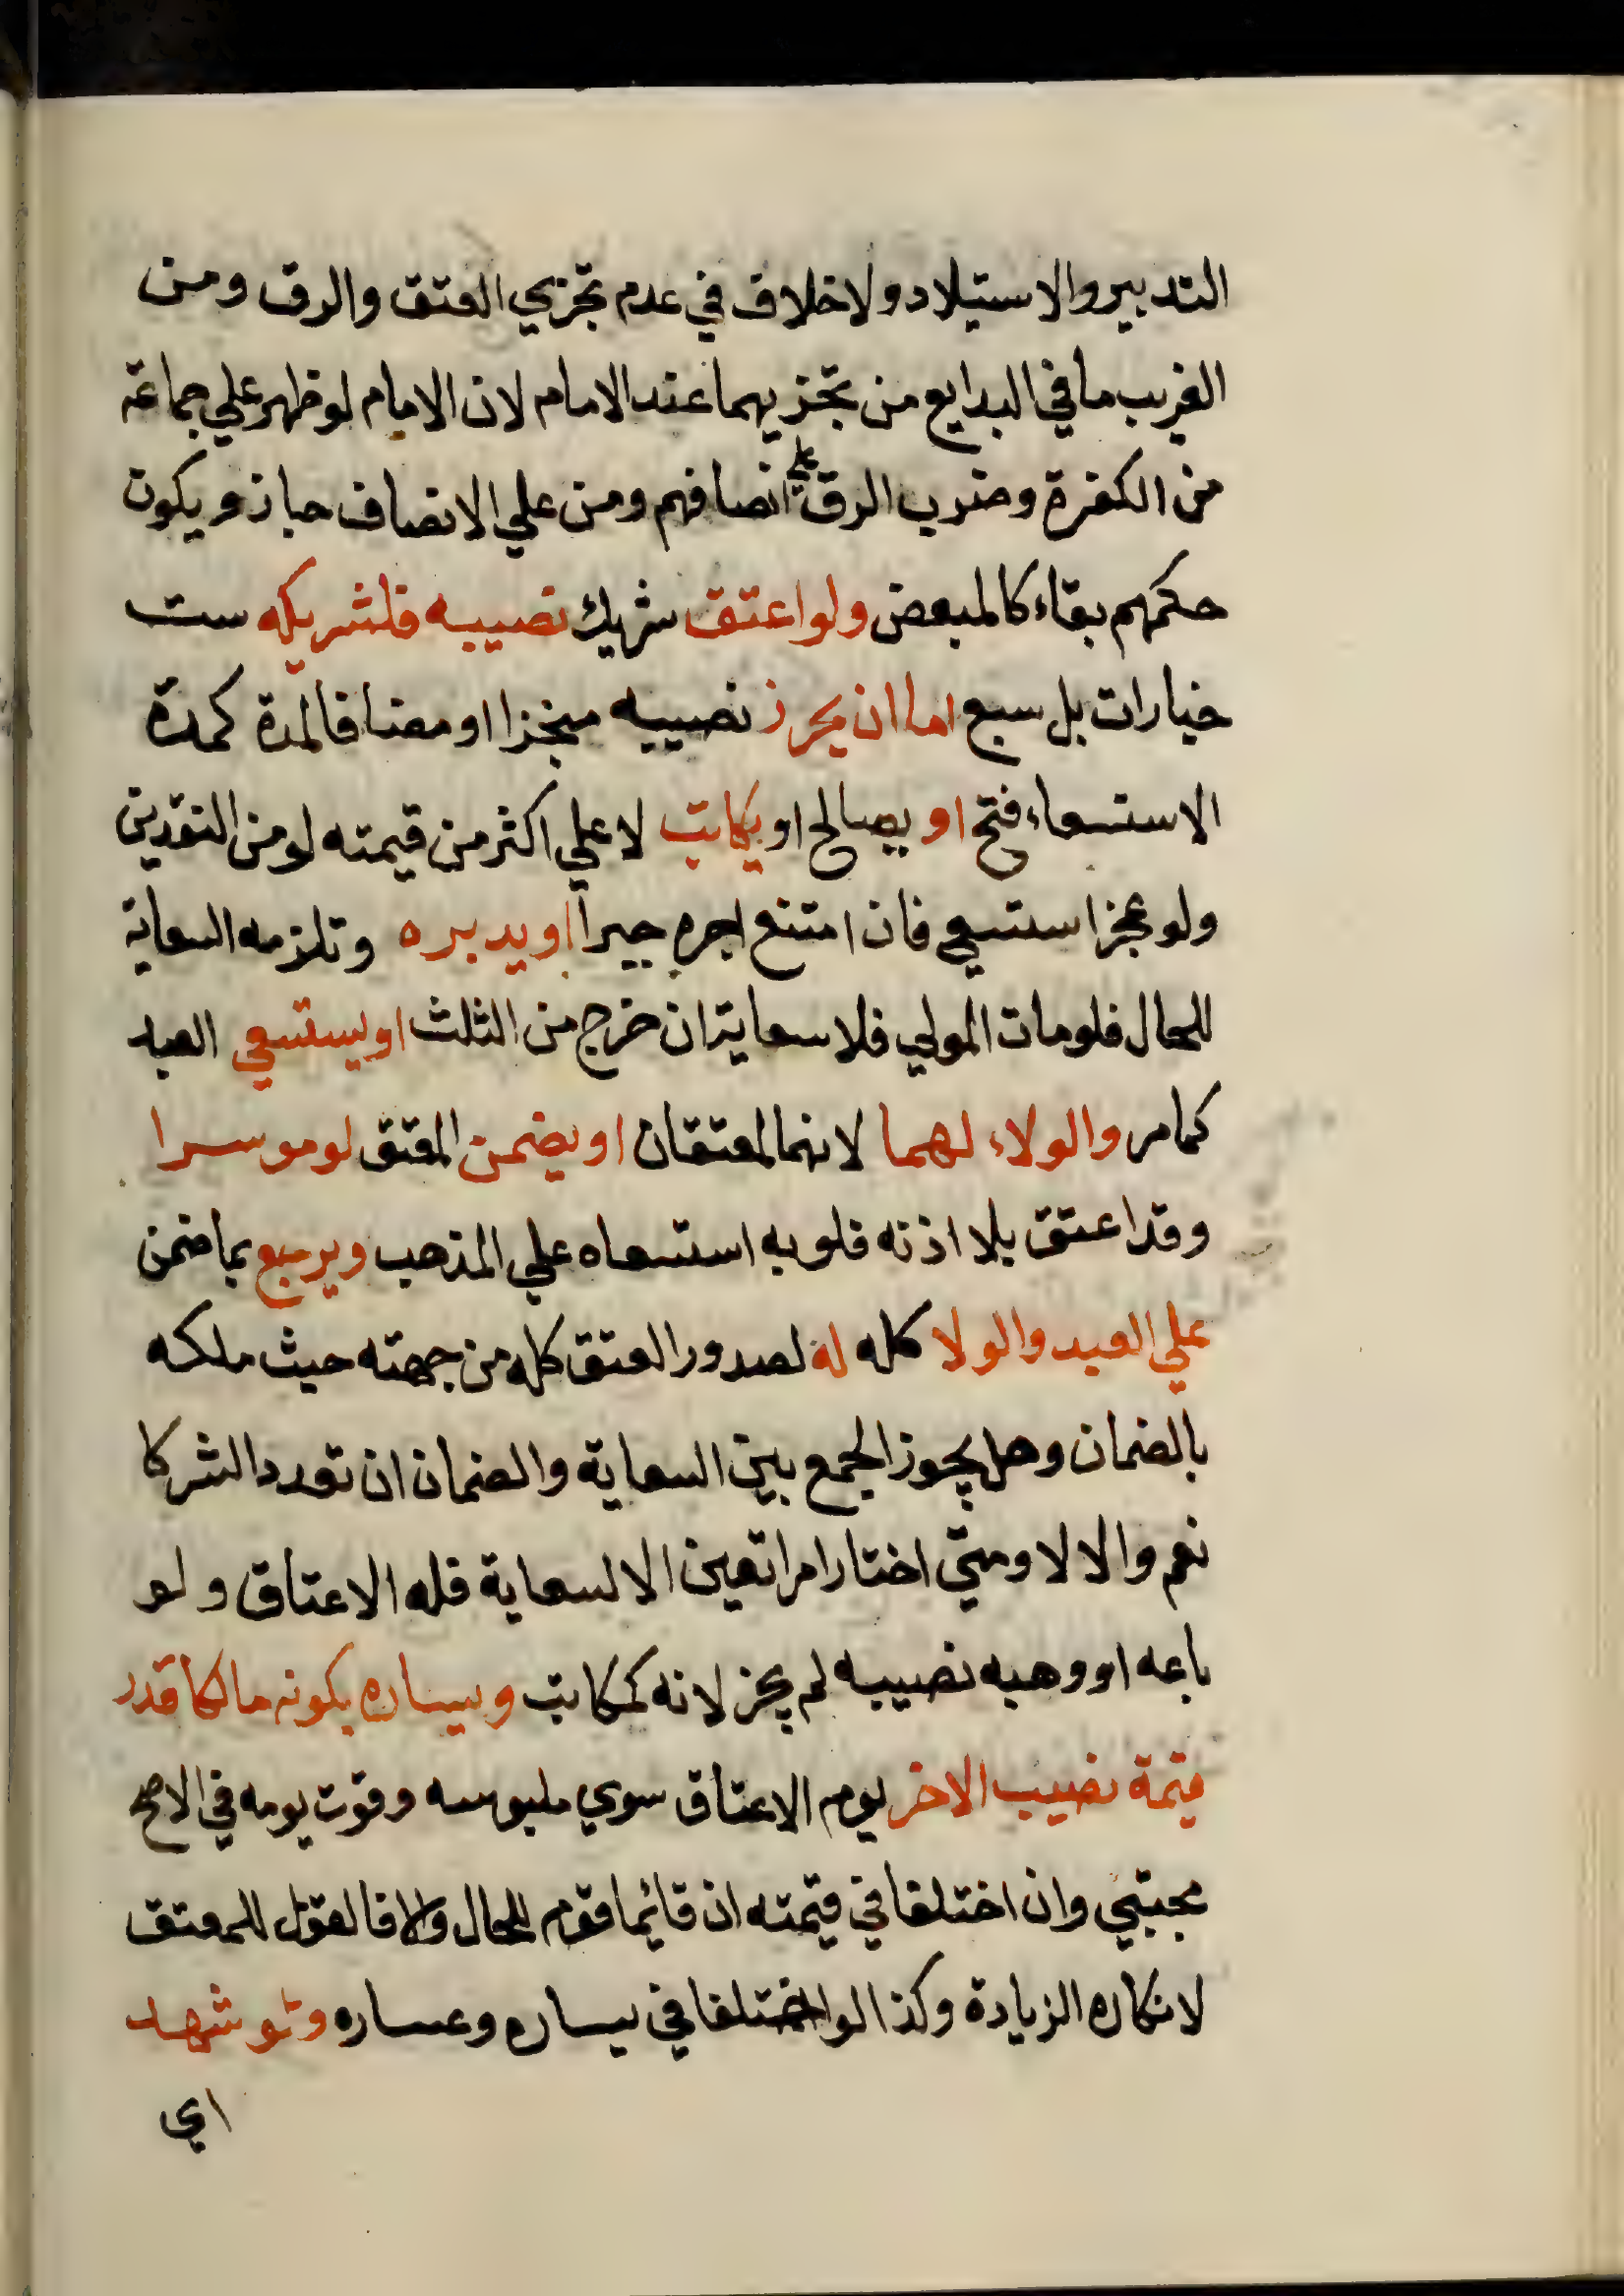 التدبير والاستيلاد ولا خلاف في عدم تجزي العتق والرق ومن
الغريب ما في البدايع من تجزيهما عند الامام لان الامام لو ظهر علي جماعة
من الكفرة وضرب الرق علي انصافهم ومن علي الانصاف جاز ويكون
حكمهم بقاء كالمبعض ولو اعتق شريك نصيبه فلشريكه ست
خيارات بل سبع اما ان يحرر نصيبه منجزا او مضافا لمدة كمدة
الاستسعاء فتح او يصالح او يكاتب لا علي اكثر من قيمته لو من النقدين
ولو عجز استسعي فان امتنع اجره جبرا او يدبره وتلزمه السعاية
للحال فلو مات المولي فلا سعاية ان خرج من الثلث او يستسعي العبد
كما مر والولاء لهما لانهما المعتقان او يضمن المعتق لو موسرا
وقد اعتق بلا اذنه فلو به استسعاه علي المذهب ويرجع بما ضمن
علي العبد والولا كله له لصدور العتق كله من جهته حيث ملكه
بالضمان وهل يجوز الجمع بين السعاية والضمان ان تعدد الشركا
نعم والا لا ومتي اختار امرا تعين الا السعاية فله الاعتاق ولو
باعه او وهبه نصيبه لم يجز لانه كمكاتب ويساره بكونه مالكا قدر
قيمة نصيب الاخر يوم الاعتاق سوي ملبوسه وقوت يومه في الاصح
مجتبي وان اختلفا في قيمته ان قائما قوم للحال والا فالقول للمعتق
لانكاره الزيادة وكذا لو اختلفا في يساره وعساره ولو شهد
اي